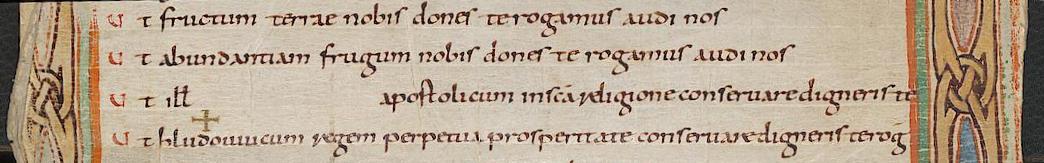 Ut fructum terrae nobis dones te rogamus audi nos
Ut abundantiam frugum nobis dones te rogamus audi nos
Ut ill̅ apostolicum in sc̅a religione conservare digneris te
Ut hludouuicum regem perpetua prosperitate conservare digneris te rog̅